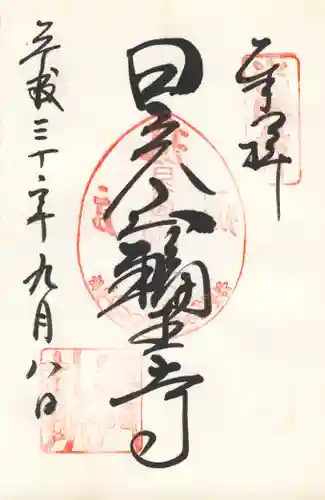 奉拝
日光山輪王寺
平成三十年九月八日